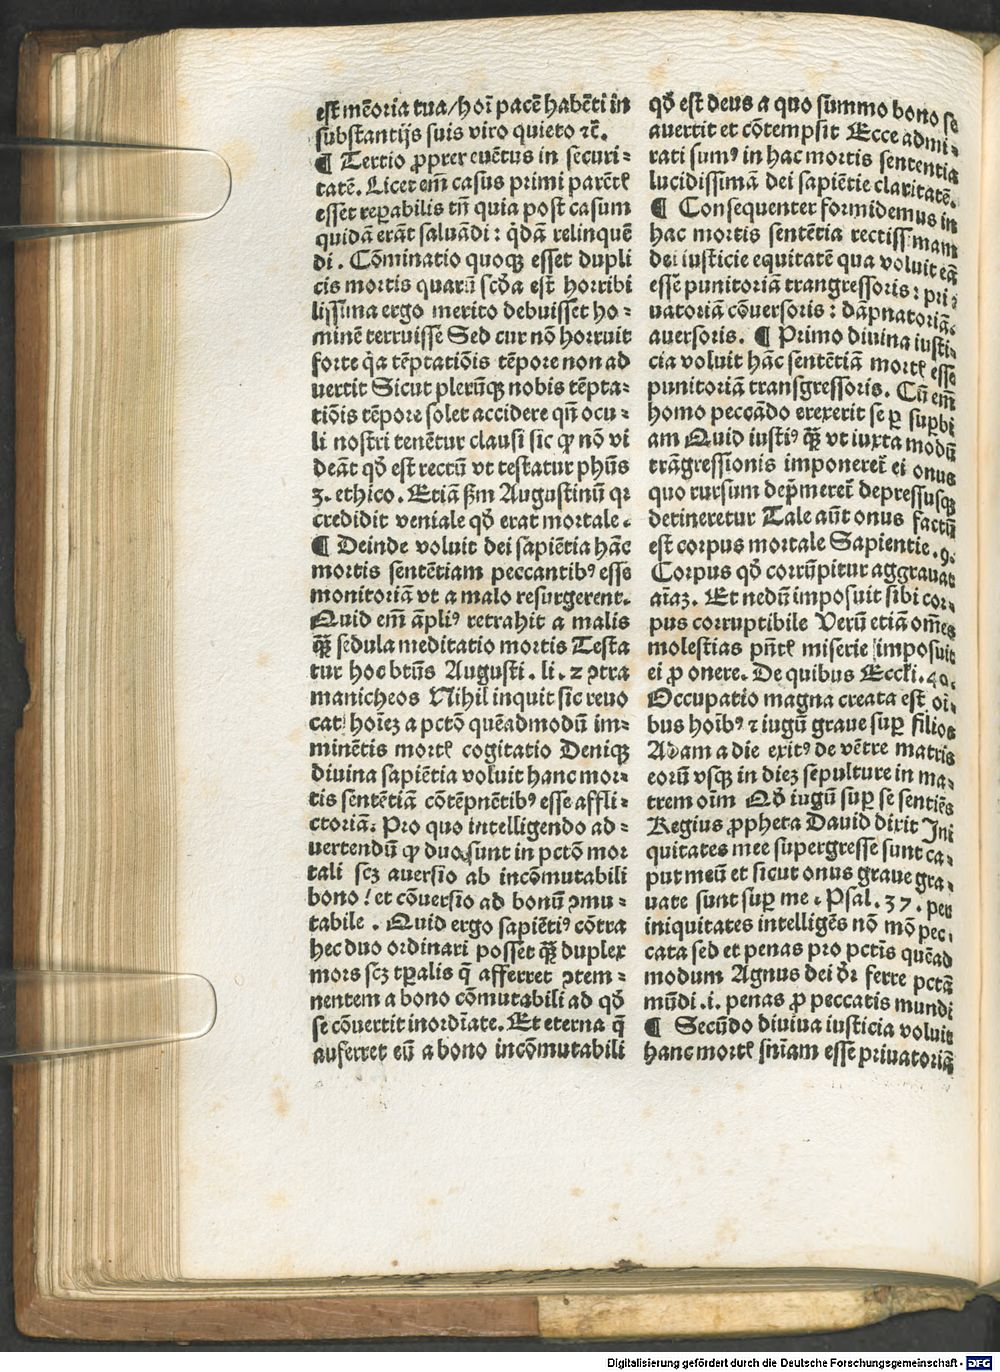 est mēoria tua/hoī pacē habēti in
substantijs suis viro quieto ⁊ċ.
¶ Tertio ꝓprer euētus in securi⸗
tatē. Licet em̄ casus primi parētꝭ
esset reꝑabilis tn̄ quia post casum
quidā erāt saluādi : q̄dā relinquē
di . Cōminatio quoqꝫ esset dupli
cis mortis quarū scđa est horribi
lissima ergo merito debuisset ho⸗
minē terruisse Sed cur nō horruit
forte q̇a tēptatiōis tēpore non ad
uertit Sicut plerūqꝫ nobis tēpta⸗
tiōis tēpore solet accidere qn̄ ocu⸗
li nostri tenētur clausi sic ꝙ nō vi
deāt qđ est rectū vt testatur ph̄us
3. ethico. Etiā ẜm Augustinū qꝛ
credidit veniale qđ erat mortale.
¶ Deinde voluit dei sapiētia hāc
mortis sentētiam peccantibꝰ esse
monitoriā vt a malo resurgerent.
Quid em̄ āpliꝰ retrahit a malis
qꝫ̄ sedula meditatio mortis Testa
tur hoc btūs Augusti . li . 2 ꝯtra
manicheos Nihil inquit sic reuo
cat hoīeꝫ a pctō quēadmodū im⸗
minētis mortꝭ cogitatio Deniqꝫ
diuina sapiētia voluit hanc mor⸗
tis sentētiā cōtēpnētibꝰ esse affli⸗
ctoriā. Pro quo intelligendo ad⸗
uertendū ꝙ duo sunt in pctō mor
tali scꝫ auersio ab incōmutabili
bono ! et cōuersio ad bonū ꝯmu⸗
tabile . Quid ergo sapiētiꝰ cōtra
hec duo ordinari posset qꝫ̄ duplex
mors scꝫ tꝑalis q̄ afferret ꝯtem⸗
nentem a bono cōmutabili ad qđ
se cōuertit inordīate. Et eterna q̄
auferret eū a bono incōmutabili
qđ est deus a quo summo bono se
auertit et cōtempsit Ecce admi⸗
rati sumꝰ in hac mortis sententia
lucidissimā dei sapiētie claritatē.
¶ Consequenter formidemus in
hac mortis sentētia rectissimam
dei iusticie equitatē qua voluit eā
esse punitoriā trangressoris : pri⸗
uatoriā cōuersoris : dāpnatoriā
auersoris. ¶ Primo diuina iusti⸗
cia voluit hāc sentētiā mortꝭ esse
punitoriā transgressoris. Cū em̄
homo peccādo erexerit se ꝑ suꝑbi
am Quid iustiꝰ qꝫ̄ vt iuxta modū
trāgressionis imponeret̄ ei onus
quo rursum dep̄meret̄ depressusqꝫ
detineretur Tale aūt onus factū
est corpus mortale Sapientie .9.
Corpus qđ corrūpitur aggrauat
aīaꝫ. Et nedū imposuit sibi cor⸗
pus corruptibile Verū etiā om̄es
molestias pn̄tꝭ miserie imposuit
ei ꝓ onere. De quibus Eccłi. 40.
Occupatio magna creata est oī⸗
bus hoībꝰ ⁊ iugū graue suꝑ filios
Adam a die exitꝰ de vētre matris
eorū vsqꝫ in dieꝫ sepulture in ma⸗
trem oīm Qđ iugū suꝑ se sentiēs
Regius ꝓpheta Dauid dixit Ini
quitates mee supergresse sunt ca⸗
put meū et sicut onus graue gra⸗
uate sunt suꝑ me. Psal. 37. per
iniquitates intelligēs nō mō pec⸗
cata sed et penas pro pctīs quēad
modum Agnus dei dr̄ ferre pctā
mūdi .i. penas ꝓ peccatis mundi
¶ Secūdo diuiua iusticia voluit
hanc mortꝭ snīam esse priuatoriā
Digitalisierung gefördert durch die Deutsche Forschungsgemeinschaft - DFG